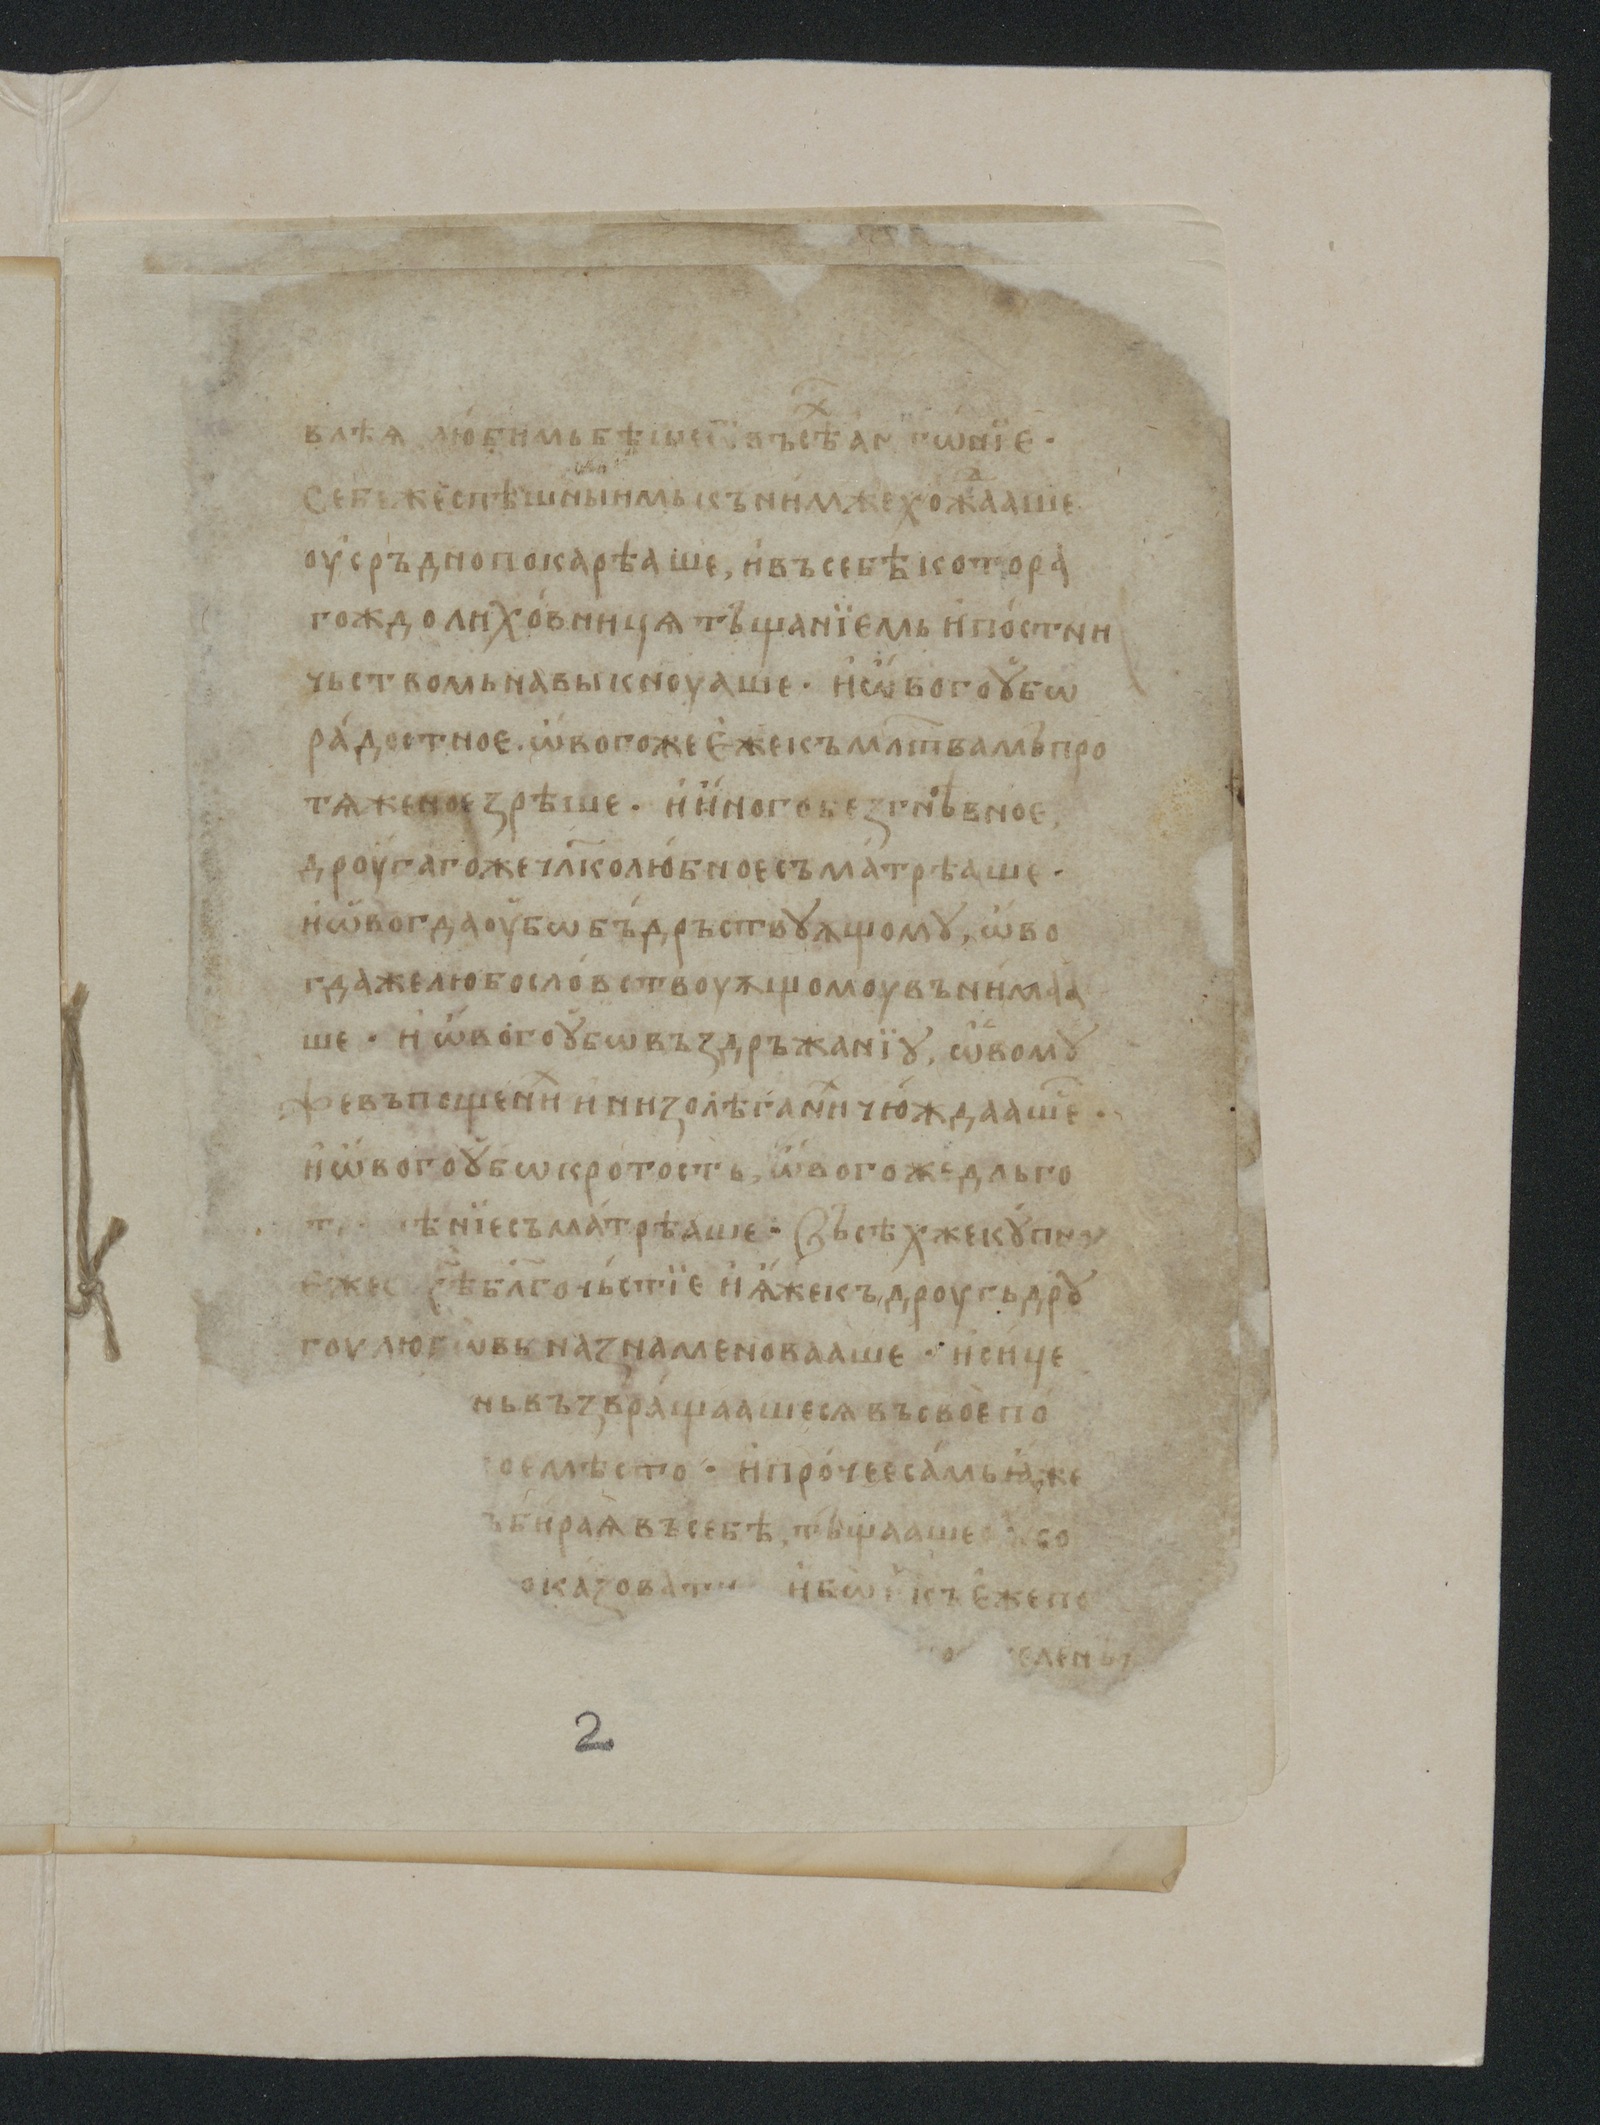 влѣѧ любимь бѣше въсѣ̑х ан тѡ́нїе ·
Себ же спѣшныимь къ ни́мже хожⷣааше
оу҆сръдно покарѣаше, и҆ въ себѣ котора́
гождо лихо́вницѧ тъщанїемь и҆ по́стни
чьствомь навыкноуаше · и҆ ѡ҆вого ꙋ҆бѡ
ра́достное. ѡ҆вогоже є҆же къ мл҃твамь про
тѧженое зрѣше · и҆ и҆ного безгнѣвное,
дроу́гагоже чл҃колю́бное съма́трѣаше ·
и҆ ѡ҆вогда оу҆бѡ бъ́дръствꙋѫщомꙋ, ѡ҆во
гдаже любосло́вствоуѫщомоу вънима́а
ше · и҆ ѡ҆вого ꙋ҆бѡ въздръжанїꙋ, ѡ҆вомꙋ
же въ пощенїиⷯ и҆ низолѣганиⷯ чю́ждааше ·
и҆ ѡ҆вого ꙋ҆бѡ кро́тость, ѡ҆вогоже длъго
т ѣнїе съма́трѣаше · Въсѣх же кꙋ́пно
є҆же бл҃гочь́стїе и҆ ѫ҆же къ дроугь дрꙋ
гоу любѡвь назнаменовааше · и҆ сице
нь възвра́щаашесѧ въ свое по
ое мѣсто · и҆ про́чее са́мь ꙗ҆же
ъби́раѧ въ себѣ, тъщааше со
оказовати и҆бѡ къ є҆же по
еленьꙗ